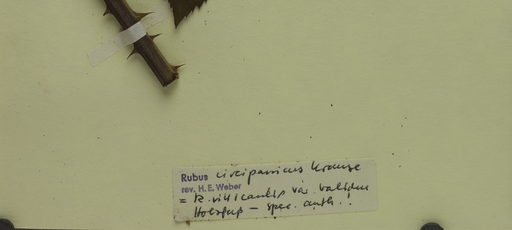 Rubus circipanicus Krause
rev. H. E. Weber
= R. villicaulis var. validus
Holzfuss — spec. auth. !